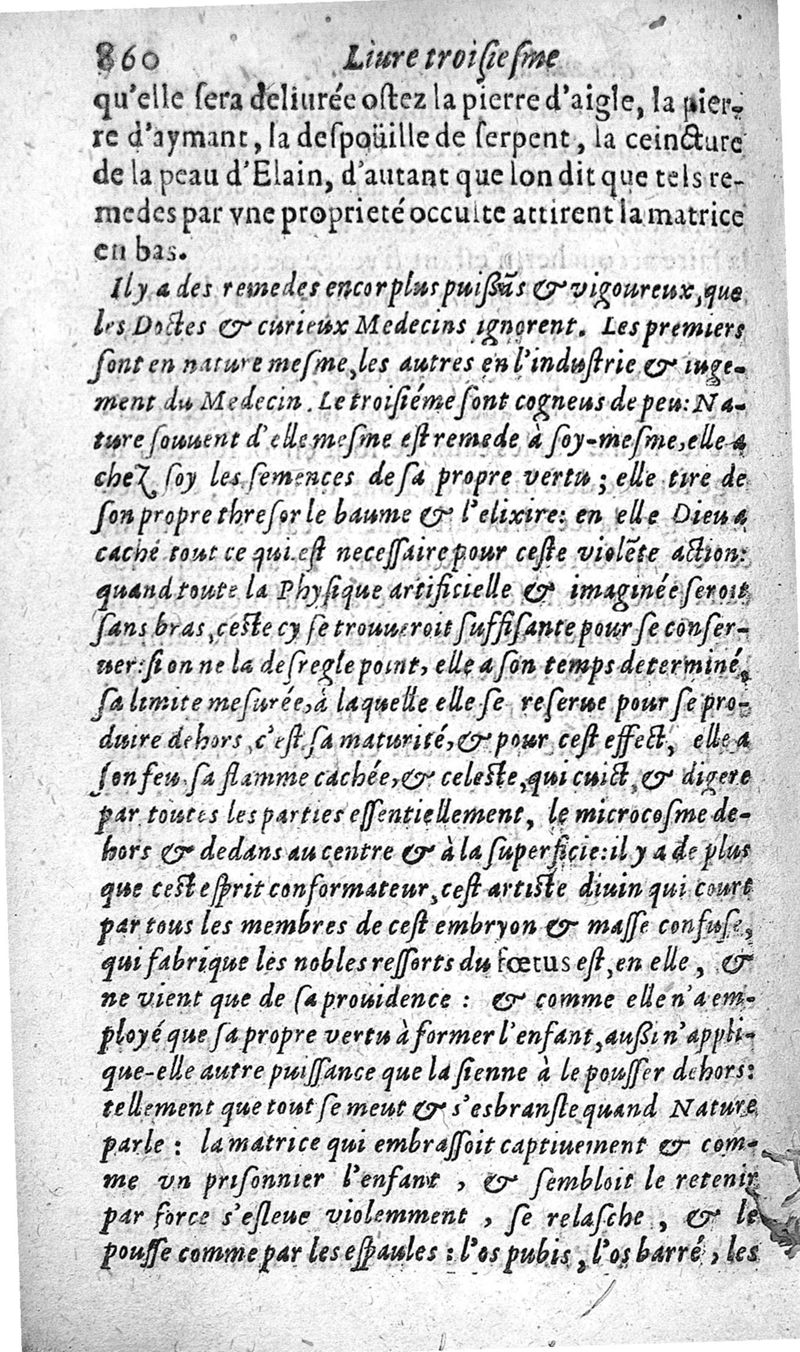 860 Liure troisiesme
qu'elle sera deliurée ostez la pierre d'aigle, la pier-
re d'aymant, la despoüille de serpent, la ceincture
de la peau d'Elain, d'autant que lon dit que tels re-
medes par vne proprieté occulte attirent la matrice
en bas.
Il y a des remedes encor plus puißãs & vigoureux, que
les Doctes & curieux Medecins ignorent. Les premiers
sont en nature mesme, les autres en l'industrie & iuge-
ment du Medecin. Le troisiéme sont cogneus de peu: Na-
ture souuent d'elle mesme est remede à soy-mesme, elle a
chez soy les semences de sa propre vertu; elle tire de
son propre thresor le baume & l'elixire: en elle Dieu a
caché tout ce qui est necessaire pour ceste violẽte action:
quand toute la Physique artificielle & imaginée seroit
sans bras, ceste cy se trouueroit suffisante pour se conser-
uer: si on ne la desregle point, elle a son temps determiné,
sa limite mesurée, à laquelle elle se reserue pour se pro-
duire dehors, c'est sa maturité, & pour cest effect, elle a
son feu, sa flamme cachée, & celeste, qui cuict, & digere
par toutes les parties essentiellement, le microcosme de-
hors & dedans au centre & à la superficie: il y a de plus
que cest esprit conformateur, cest artiste diuin qui court
par tous les membres de cest embryon & masse confuse,
qui fabrique les nobles ressorts du fœtus est, en elle, &
ne vient que de sa prouidence : & comme elle n'a em-
ployé que sa propre vertu à former l'enfant, außi n'appli-
que-elle autre puissance que la sienne à le pousser dehors:
tellement que tout se meut & s'esbransle quand Nature
parle : la matrice qui embrassoit captiuement & com-
me vn prisonnier l'enfant , & sembloit le retenir
par force s'esleue violemment , se relasche , & le
pousse comme par les espaules : l'os pubis, l'os barré, les